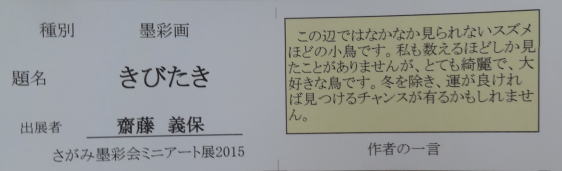 種別　墨彩画
題名　きびたき
出展者　齋藤 義保
さがみ墨彩会ミニアート展2015
この辺ではなかなか見られないスズメ
ほどの小鳥です。私も数えるほどしか見
たことがありませんが、とても綺麗で、大
好きな鳥です。冬を除き、運が良けれ
ば見つけるチャンスが有るかもしれませ
ん。
作者の一言